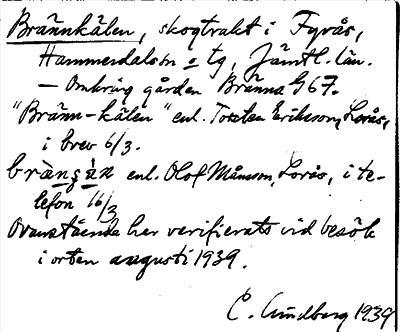 Brännkälen, skogtrakt i Fyrås,
Hammerdals sn o tg, Jämtl. län.
— Omkring gården Bränna G67.
"Bränn-kälen" enl. Torsten Erikson, Lorås,
i brev 6/3.
enl. Olof Månsson, Lorås, i te-
lefon 16/3
Ovanstående har verifierats vid besök
i orten augusti 1939.
E. Lundberg 1939